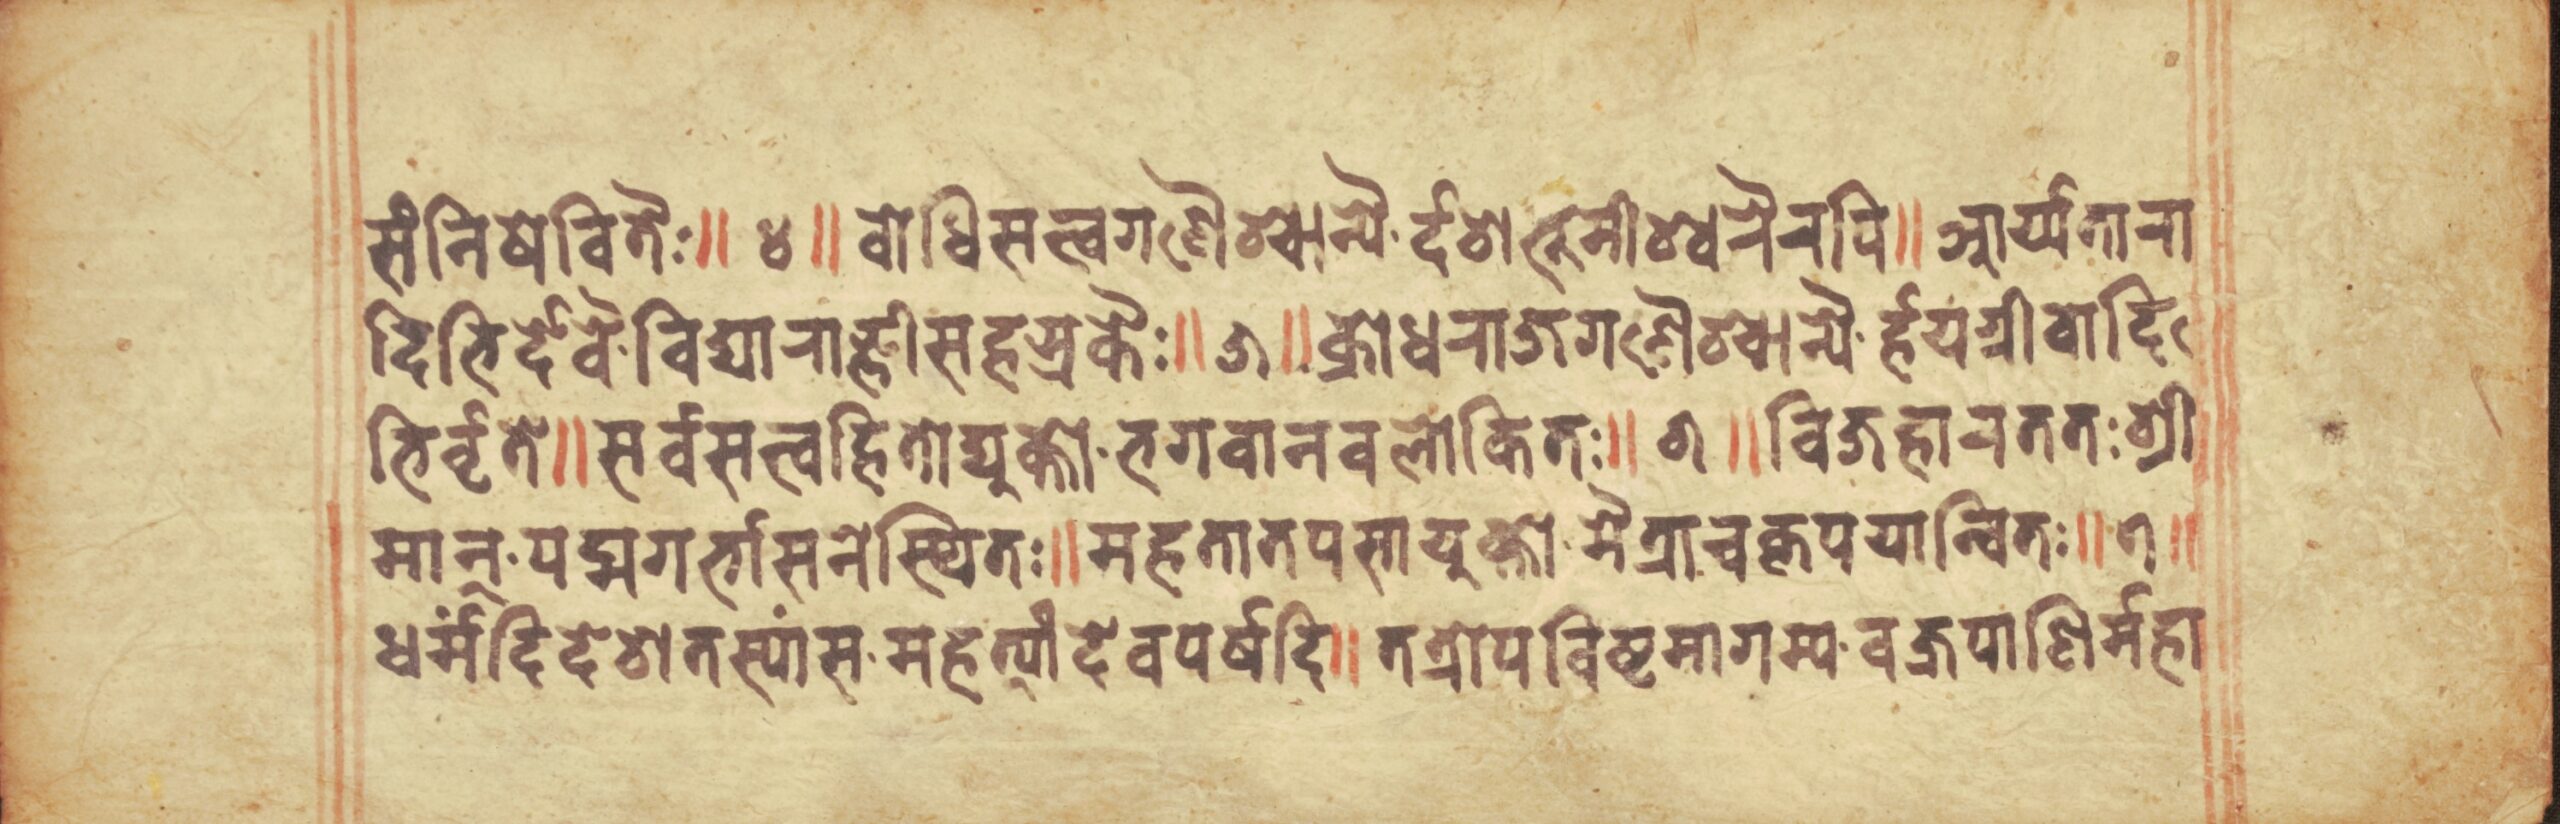 संनिषेवितैः॥ ४॥ वोधिसत्त्वगणैश्चान्यै·र्दशभूमीश्वरैरपि॥ आर्य्यतारा
दिभिर्द्देवै·विद्याराज्ञीसहस्रकैः॥ ५॥ क्रोधराजगणैश्चान्यै·र्हयग्रीवादि
भिर्वृते॥ सर्वसत्त्वहितोद्युक्तो·भगवानवलोकितः॥ ६॥ विजहारततःश्री
मान्·पद्मगर्भासनेस्थितः॥ महतातपसायुक्तो·मैत्राचकृपयान्वितः॥ ७॥
धर्मंदिदेशतस्यांस·महत्यांदेवपर्षदि॥ तत्रोपविष्टमागम्य·वज्रपाणिर्महा